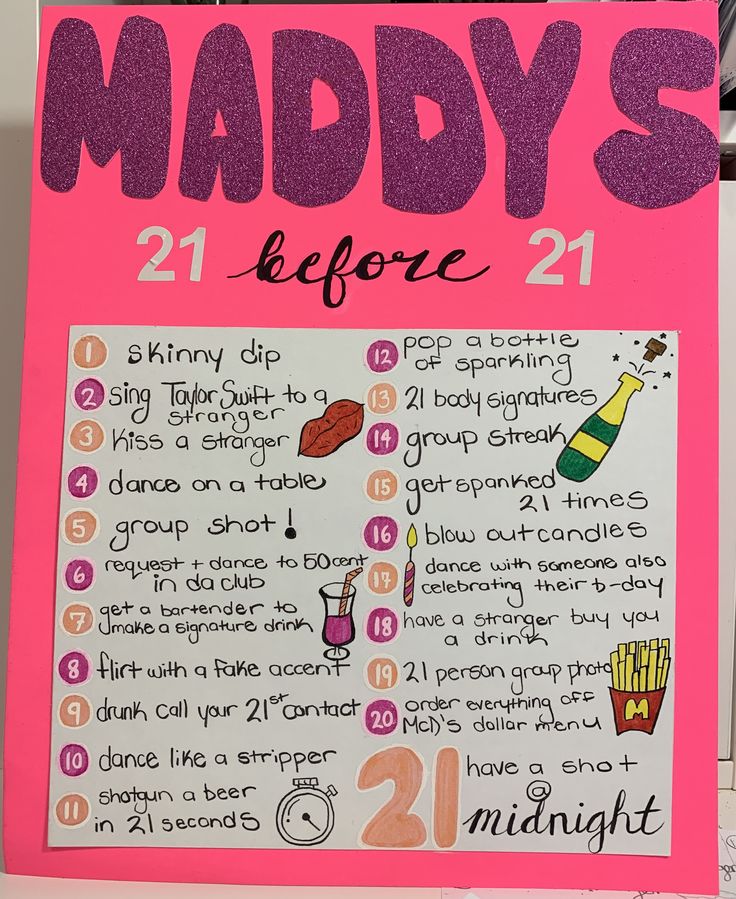 MADDYS
21 before 21
1 skinny dip
2 sing Taylor Swift to a
stranger
3 kiss a stranger
4 dance on a table
5 group shot!
6 request + dance to 50 cent
in da club
7 get a bartender to
make a signature drink
8 flirt with a fake accent
9 drunk call your 21st contact
10 dance like a stripper
11 shotgun a beer
in 21 seconds
12 pop a bottle
of sparkling
13 21 body signatures
14 group streak
15 get spanked
21 times
16 blow out candles
17 dance with someone also
celebrating their b-day
18 have a stranger buy you
a drink
19 21 person group photo
20 order everything off
McD's dollar menu
M
21 have a shot
@
midnight